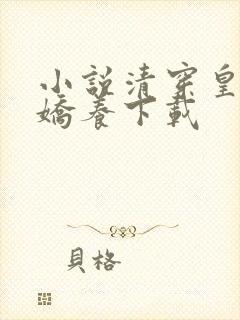 小說清穿皇
嬌養下載
貝格